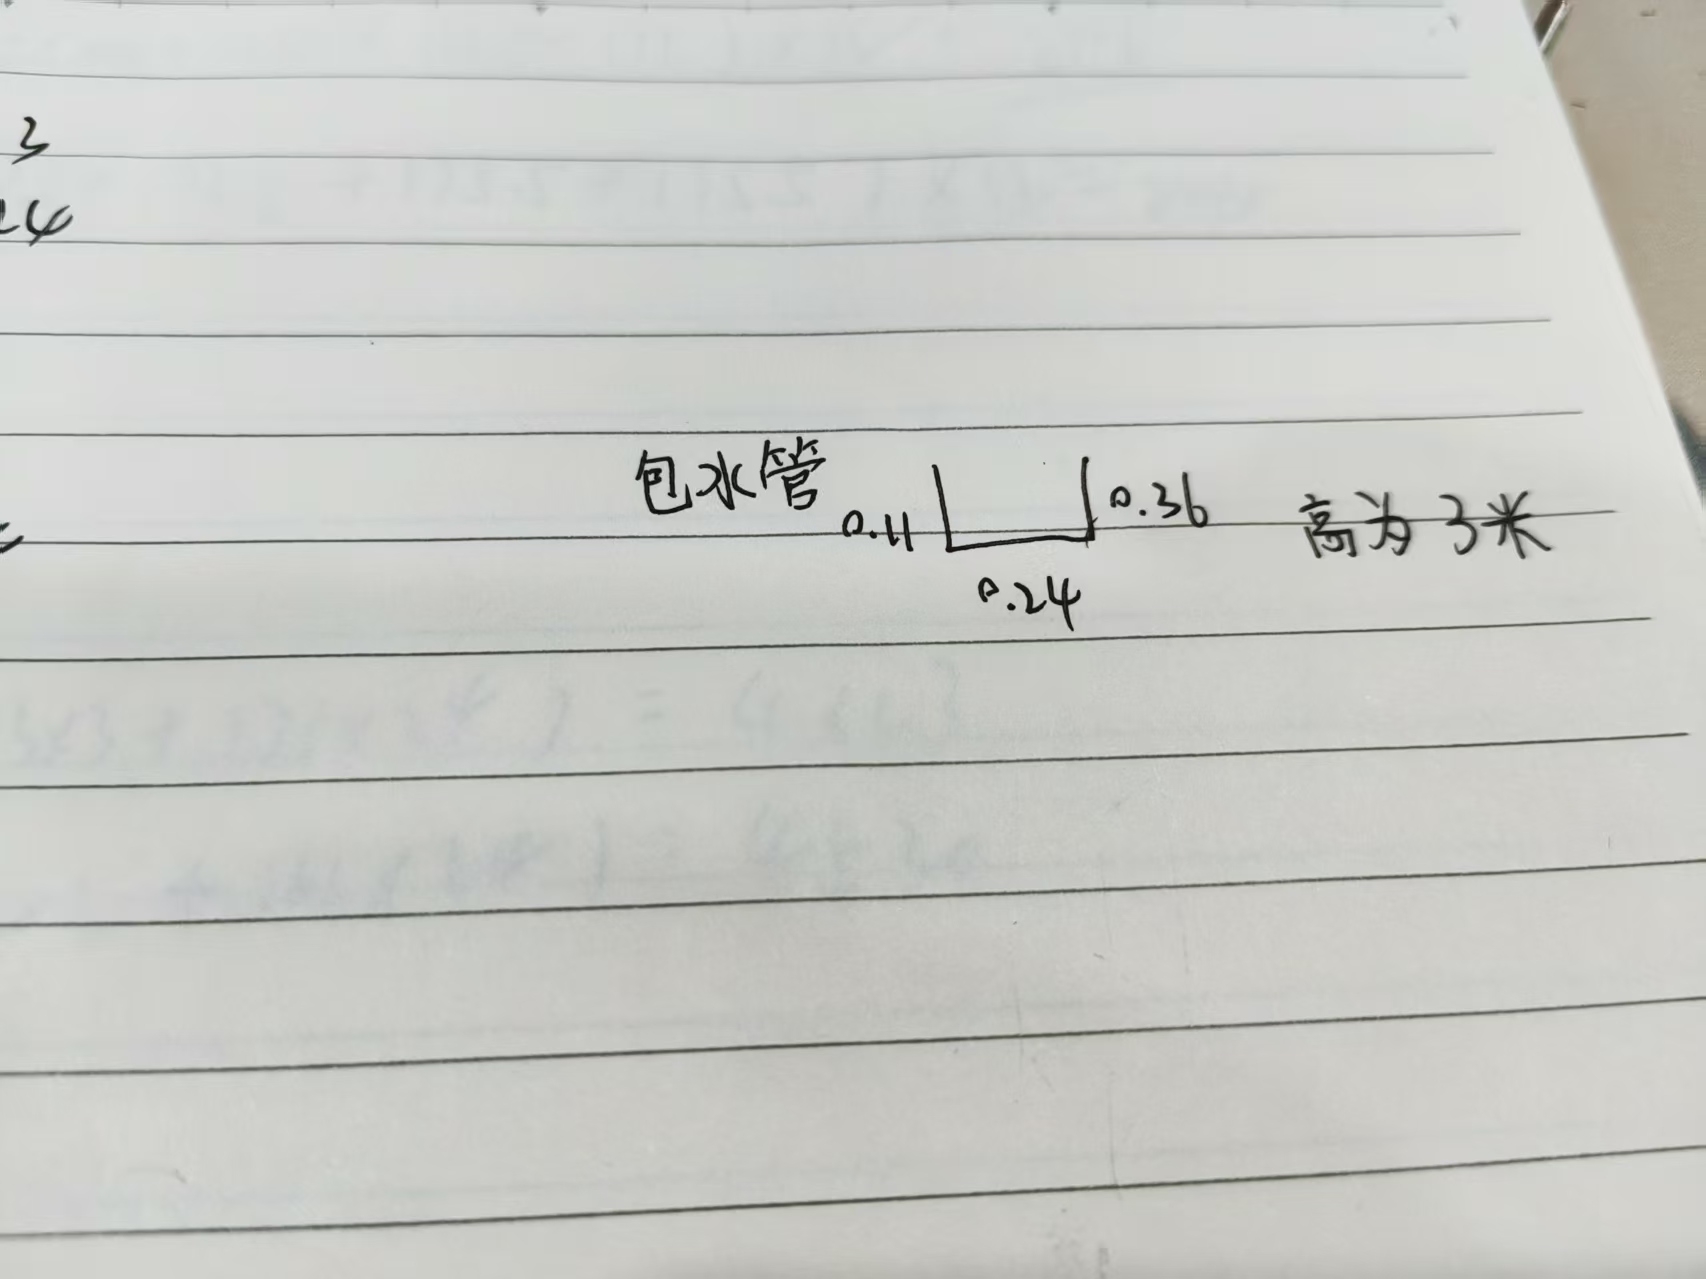 3
24
包水管 0.11 0.36 高为3米
0.24